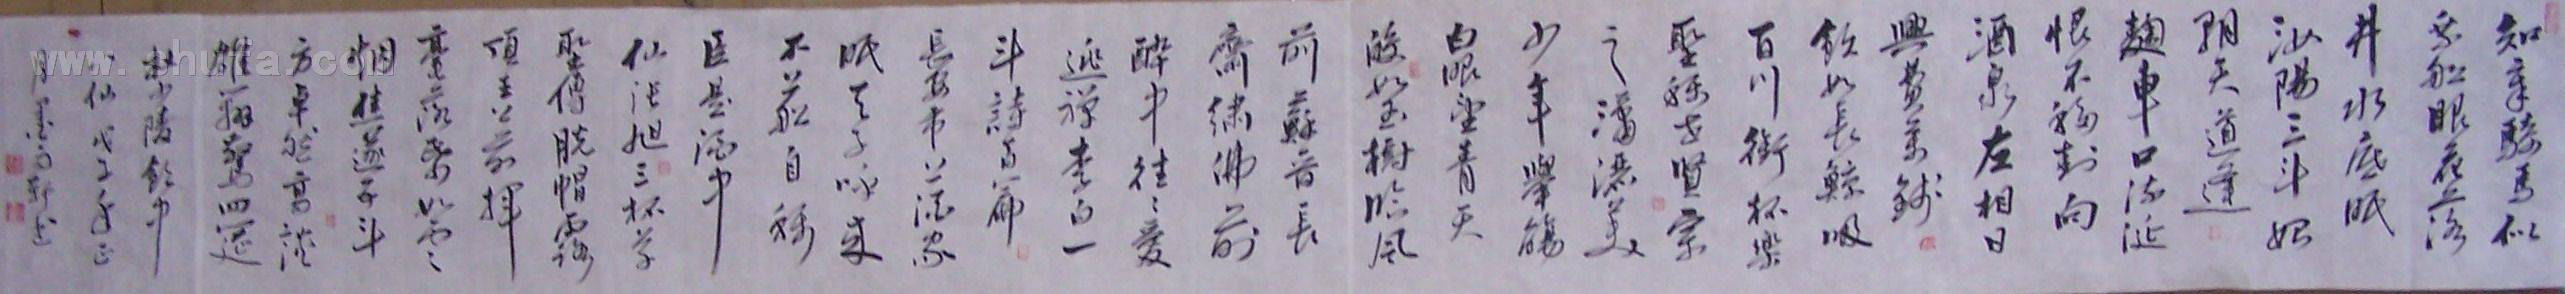 知章騎馬似
乘船眼花落
井水底眠
汝陽三斗始
朝天道逢
麴車口流涎
恨不移封向
酒泉左相日
興費萬錢
飲如長鯨吸
百川銜杯樂
聖稱世賢宗
之瀟灑美
少年舉觴
白眼望青天
皎如玉樹臨風
前蘇晉長
齋繡佛前
醉中往〻愛
逃禪李白一
斗詩百篇
長安市上酒家
眠天子呼來
不上船自稱
臣是酒中
仙張旭三杯草
聖傳脫帽露
頂王公前揮
毫落紙如雲〻
烟焦遂五斗
方卓然高談
雄辯驚四筵
杜少陵飲中
八仙戊子年正
月墨
www.shufa.com